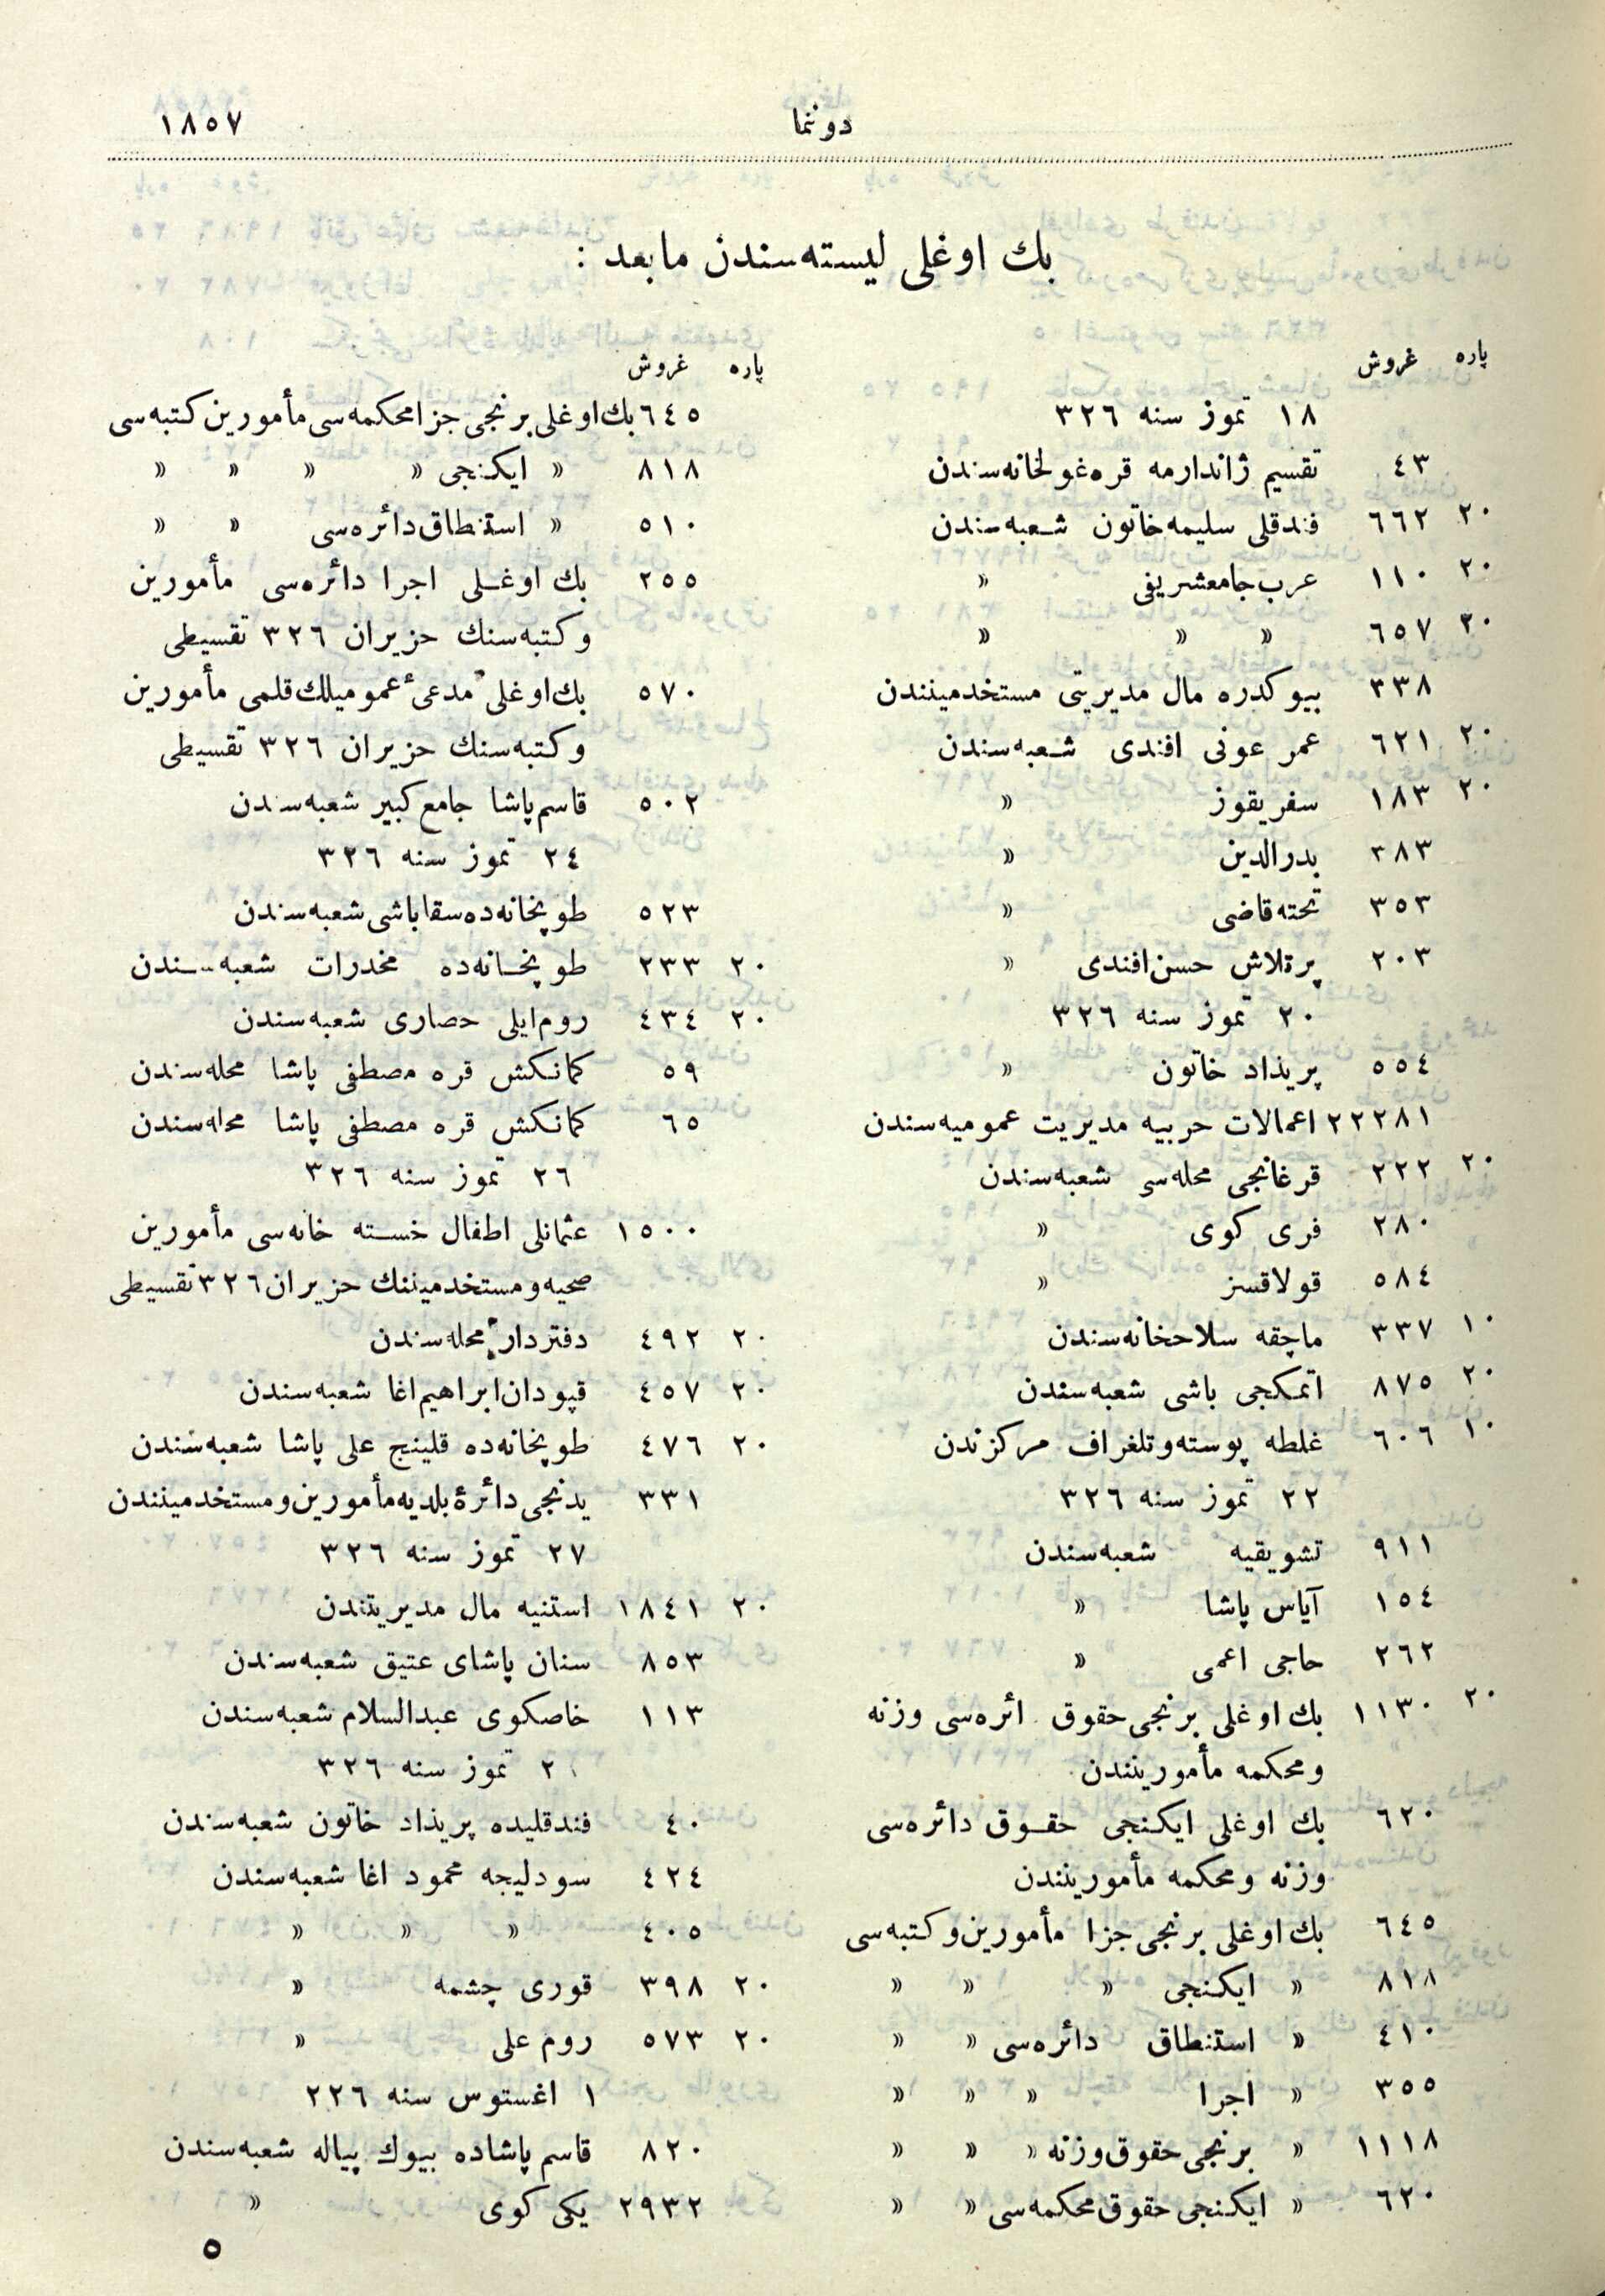 دونما
١٨٥٧
بك اوغلی لیسته‌سندن مابعد :
پاره غروش
١٨ تموز سنه ٣٢٦
٤٣ تقسیم ژاندارمه قره‌غولخانه‌سندن
٢٠ ٦٦٢ فندقلی سلیمه خاتون شعبه‌سندن
٢٠ ١١٠ عرب‌جامعشریفی »
٢٠ ٦٥٧ » » »
٣٣٨ بیوكدره مال مدیریتی مستخدمینندن
٢٠ ٦٢١ عمر عونی افندی شعبه‌سندن
٢٠ ١٨٣ سفریقوز »
٣٨٣ بدرالدین »
٣٥٣ تخته‌قاضی »
٢٠٣ پرتلاش حسن‌افندی »
٢٠ تموز سنه ٣٢٦
٥٥٤ پریذاد خاتون »
٢٢٢٨١ اعمالات حربیه مدیریت عمومیه‌سندن
٢٠ ٢٢٢ قرغانجی محله‌سی شعبه‌سندن
٢٨٠ فری كوی »
٥٨٤ قولاقسز »
١٠ ٣٣٧ ماچقه سلاحخانه‌سندن
٢٠ ٨٧٥ اتمكجی باشی شعبه‌سندن
١٠ ٦٠٦ غلطه پوسته‌وتلغراف مركزندن
٢٢ تموز سنه ٣٢٦
٩١١ تشویقیه شعبه‌سندن
١٥٤ آیاس پاشا »
٢٦٢ حاجی اعمی »
٢٠ ١١٣٠ بك اوغلی برنجی حقوق ائره‌سی وزنه
ومحكمه مأمورینندن
٦٢٠ بك اوغلی ایكنجی حقوق دائره‌سی
وزنه ومحكمه مأمورینندن
٦٤٥ بك اوغلی برنجی جزا مأمورین‌وكتبه‌سی
٨١٨ » ایكنجی » » »
٤١٠ » استنطاق دائره‌سی » »
٣٥٥ » اجرا » » »
١١١٨ » برنجی حقوق‌وزنه » » »
٦٢٠ » ایكنجی حقوق‌محكمه‌سی » »
پاره غروش
٦٤٥ بك‌اوغلی برنجی جزامحكمه‌سی مأمورین كتبه‌سی
٨١٨ » ایكنجی » » » »
٥١٠ » استنطاق‌دائره‌سی » »
٢٥٥ بك اوغلی اجرا دائره‌سی مأمورین
وكتبه‌سنك حزیران ٣٢٦ تقسیطی
٥٧٠ بك‌اوغلی مدعیٔ عمومیلك‌قلمی مأمورین
وكتبه‌سنك حزیران ٣٢٦ تقسیطی
٥٠٢ قاسم‌پاشا جامع كبیر شعبه‌سندن
٢٤ تموز سنه ٣٢٦
٥٢٣ طوپخانه‌ده‌سقاباشی شعبه‌سندن
٢٠ ٢٣٣ طوپخانه‌ده مخدرات شعبه‌سندن
٢٠ ٤٣٤ روم‌ایلی حصاری شعبه‌سندن
٥٩ كمانكش قره مصطفی پاشا محله‌سندن
٦٥ كمانكش قره مصطفی پاشا محله‌سندن
٢٦ تموز سنه ٣٢٦
١٥٠٠ عثمانلی اطفال خسته خانه‌سی مأمورین
صحیه‌ومستخدمیننك حزیران ٣٢٦ تقسیطی
٢٠ ٤٩٢ دفتردار محله‌سندن
٢٠ ٤٥٧ قپودان‌ابراهیم‌اغا شعبه‌سندن
٢٠ ٤٧٦ طوپخانه‌ده قلینج علی پاشا شعبه‌سندن
٣٣١ یدنجی دائرهٔ بلدیه‌مأمورین‌ومستخدمینندن
٢٧ تموز سنه ٣٢٦
٢٠ ١٨٤١ استنیه مال مدیریتندن
٨٥٣ سنان پاشای عتیق شعبه‌سندن
١١٣ خاصكوی عبدالسلام شعبه‌سندن
٢ تموز سنه ٣٢٦
٤٠ فندقلیده پریذاد خاتون شعبه‌سندن
٤٢٤ سودلیجه محمود اغا شعبه‌سندن
٤٠٥ » » »
٢٠ ٣٩٨ قوری چشمه »
٢٠ ٥٧٣ روم علی »
١ اغستوس سنه ٢٢٦
٨٢٠ قاسم پاشاده بیوك پیاله شعبه‌سندن
٢٩٣٢ یكی كوی »
٥